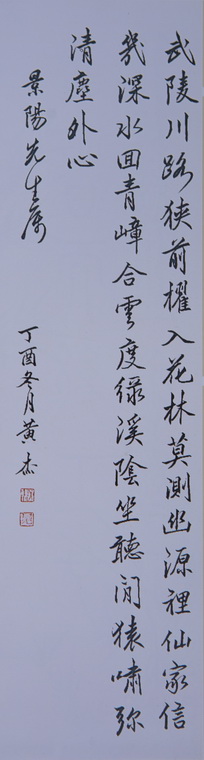 武陵川路狹前櫂入花林莫測幽源裡仙家信
幾深水回青嶂合雲度綠溪陰坐聽閒猿嘯弥
清塵外心
景陽先生属
丁酉冬月黃杰